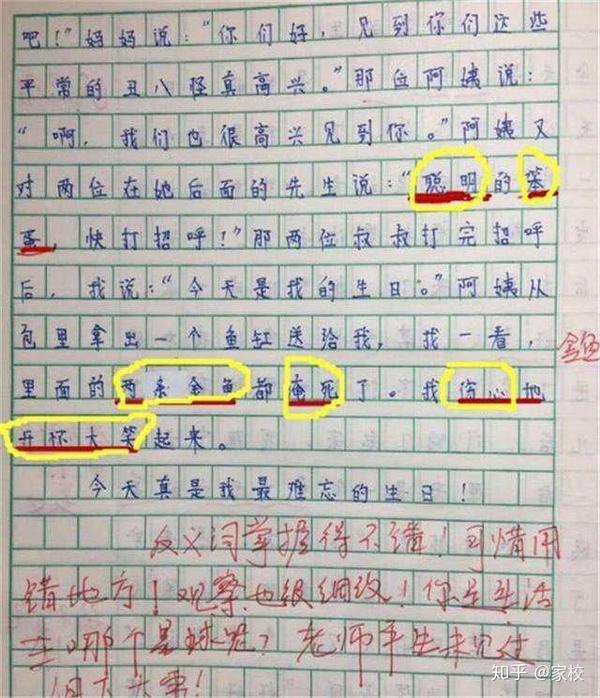 吧！”妈妈说：“你们好，见到你们这些
平常的丑八怪真高兴。”那位阿姨说：
“啊，我们也很高兴见到你。”阿姨又
对两位在她后面的先生说：“聪明的笨
蛋，快打招呼！”那两位叔叔打完招呼
后，我说：“今天是我的生日。”阿姨从
包里拿出一个鱼缸送给我，我一看，
里面的两条金鱼都淹死了。我伤心地
开怀大笑起来。
金鱼
今天真是我最难忘的生日！
反义词掌握得不错！可惜用
错地方！观察也很细致！你是生活
在哪个星球啦？老师平生未见过
知乎 @家校